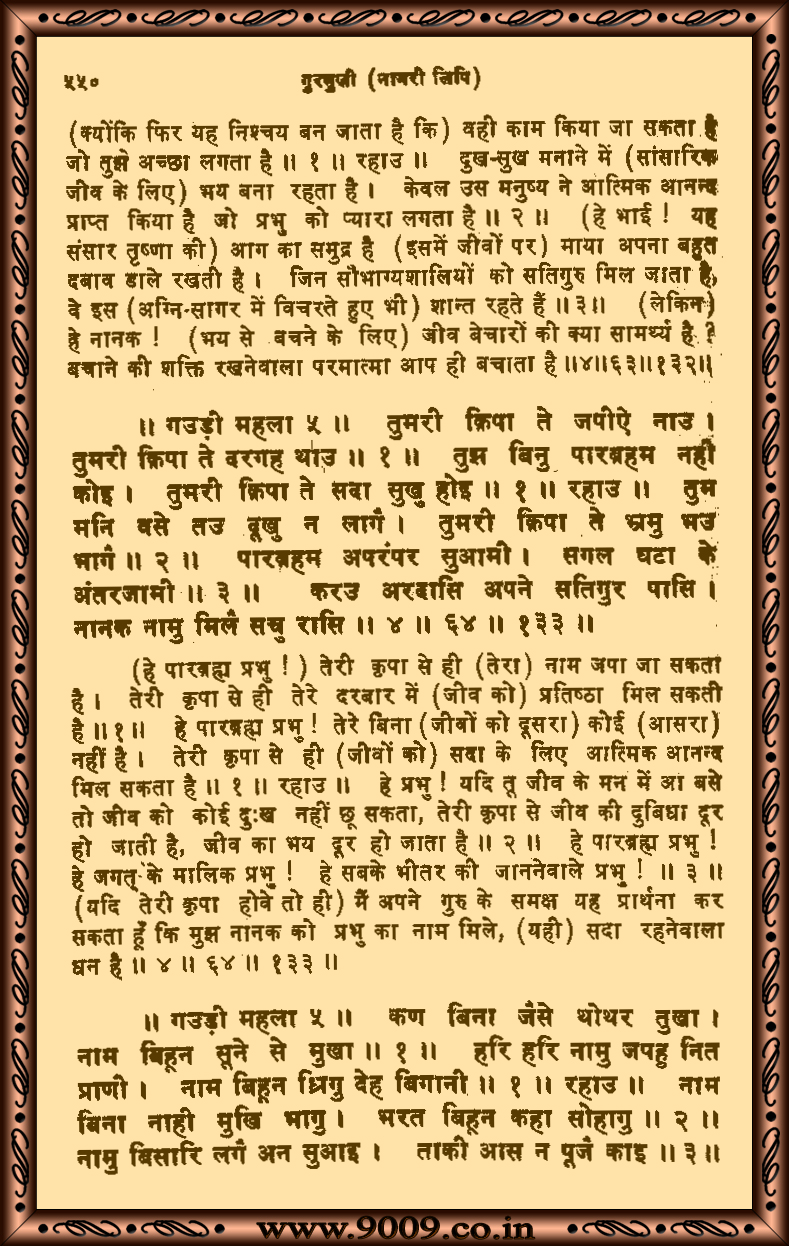 ५५०   गुरमुखी (नागरी लिपि)
(क्योंकि फिर यह निश्चय बन जाता है कि) वही काम किया जा सकता है
जो तुझे अच्छा लगता है ॥ १ ॥ रहाउ ॥ दुख-सुख मनाने में (सांसारिक
जीव के लिए) भय बना रहता है । केवल उस मनुष्य ने आत्मिक आनन्द
प्राप्त किया है जो प्रभु को प्यारा लगता है ॥ २ ॥ (हे भाई ! यह
संसार तृष्णा की) आग का समुद्र है (इसमें जीवों पर) माया अपना बहुत
दबाव डाले रखती है । जिन सौभाग्यशालियों को सतिगुरु मिल जाता है,
वे इस (अग्नि-सागर में विचरते हुए भी) शान्त रहते हैं ॥ ३॥ (लेकिन)
हे नानक ! (भय से बचने के लिए) जीव बेचारों की क्या सामर्थ्य है ?
बचाने की शक्ति रखनेवाला परमात्मा आप ही बचाता है ॥४॥६३॥१३२॥
॥ गउड़ी महला ५ ॥ तुमरी क्रिपा ते जपीऐ नाउ ।
तुमरी क्रिपा ते दरगह थाउ ॥ १ ॥ तुझ बिनु पारब्रहम नही
कोइ । तुमरी क्रिपा ते सदा सुखु होइ ॥ १ ॥ रहाउ ॥ तुम
मनि वसे तउ दूखु न लागै । तुमरी क्रिपा ते भ्रमु भउ
भागै ॥ २ ॥ पारब्रहम अपरंपर सुआमी । सगल घटा के
अंतरजामी ॥ ३ ॥ करउ अरदासि अपने सतिगुर पासि ।
नानक नामु मिलै सचु रासि ॥ ४ ॥ ६४ ॥ १३३ ॥
(हे पारब्रह्म प्रभु ! ) तेरी कृपा से ही (तेरा) नाम जपा जा सकता
है । तेरी कृपा से ही तेरे दरबार में (जीव को) प्रतिष्ठा मिल सकती
है ॥ १॥ हे पारब्रह्म प्रभु ! तेरे बिना (जीवों को दूसरा) कोई (आसरा)
नहीं है । तेरी कृपा से ही (जीवों को) सदा के लिए आत्मिक आनन्द
मिल सकता है ॥ १ ॥ रहाउ ॥ हे प्रभु ! यदि तू जीव के मन में आ बसे
तो जीव को कोई दुःख नहीं छू सकता, तेरी कृपा से जीव की दुबिधा दूर
हो जाती है, जीव का भय दूर हो जाता है ॥ २ ॥ हे पारब्रह्म प्रभु !
हे जगत् के मालिक प्रभु ! हे सबके भीतर की जाननेवाले प्रभु ! ॥ ३ ॥
(यदि तेरी कृपा होवे तो ही) मैं अपने गुरु के समक्ष यह प्रार्थना कर
सकता हूँ कि मुझ नानक को प्रभु का नाम मिले, (यही) सदा रहनेवाला
धन है ॥ ४ ॥ ६४ ॥ १३३ ॥
॥ गउड़ी महला ५ ॥ कण बिना जैसे थोथर तुखा ।
नाम बिहून सूने से मुखा ॥ १ ॥ हरि हरि नामु जपहु नित
प्राणी । नाम बिहून ध्रिगु देह बिगानी ॥ १ ॥ रहाउ ॥ नाम
बिना नाही मुखि भागु । भरत बिहून कहा सोहागु ॥ २ ॥
नामु बिसारि लगै अन सुआइ । ताकी आस न पूजै काइ ॥ ३॥
www.9009.co.in